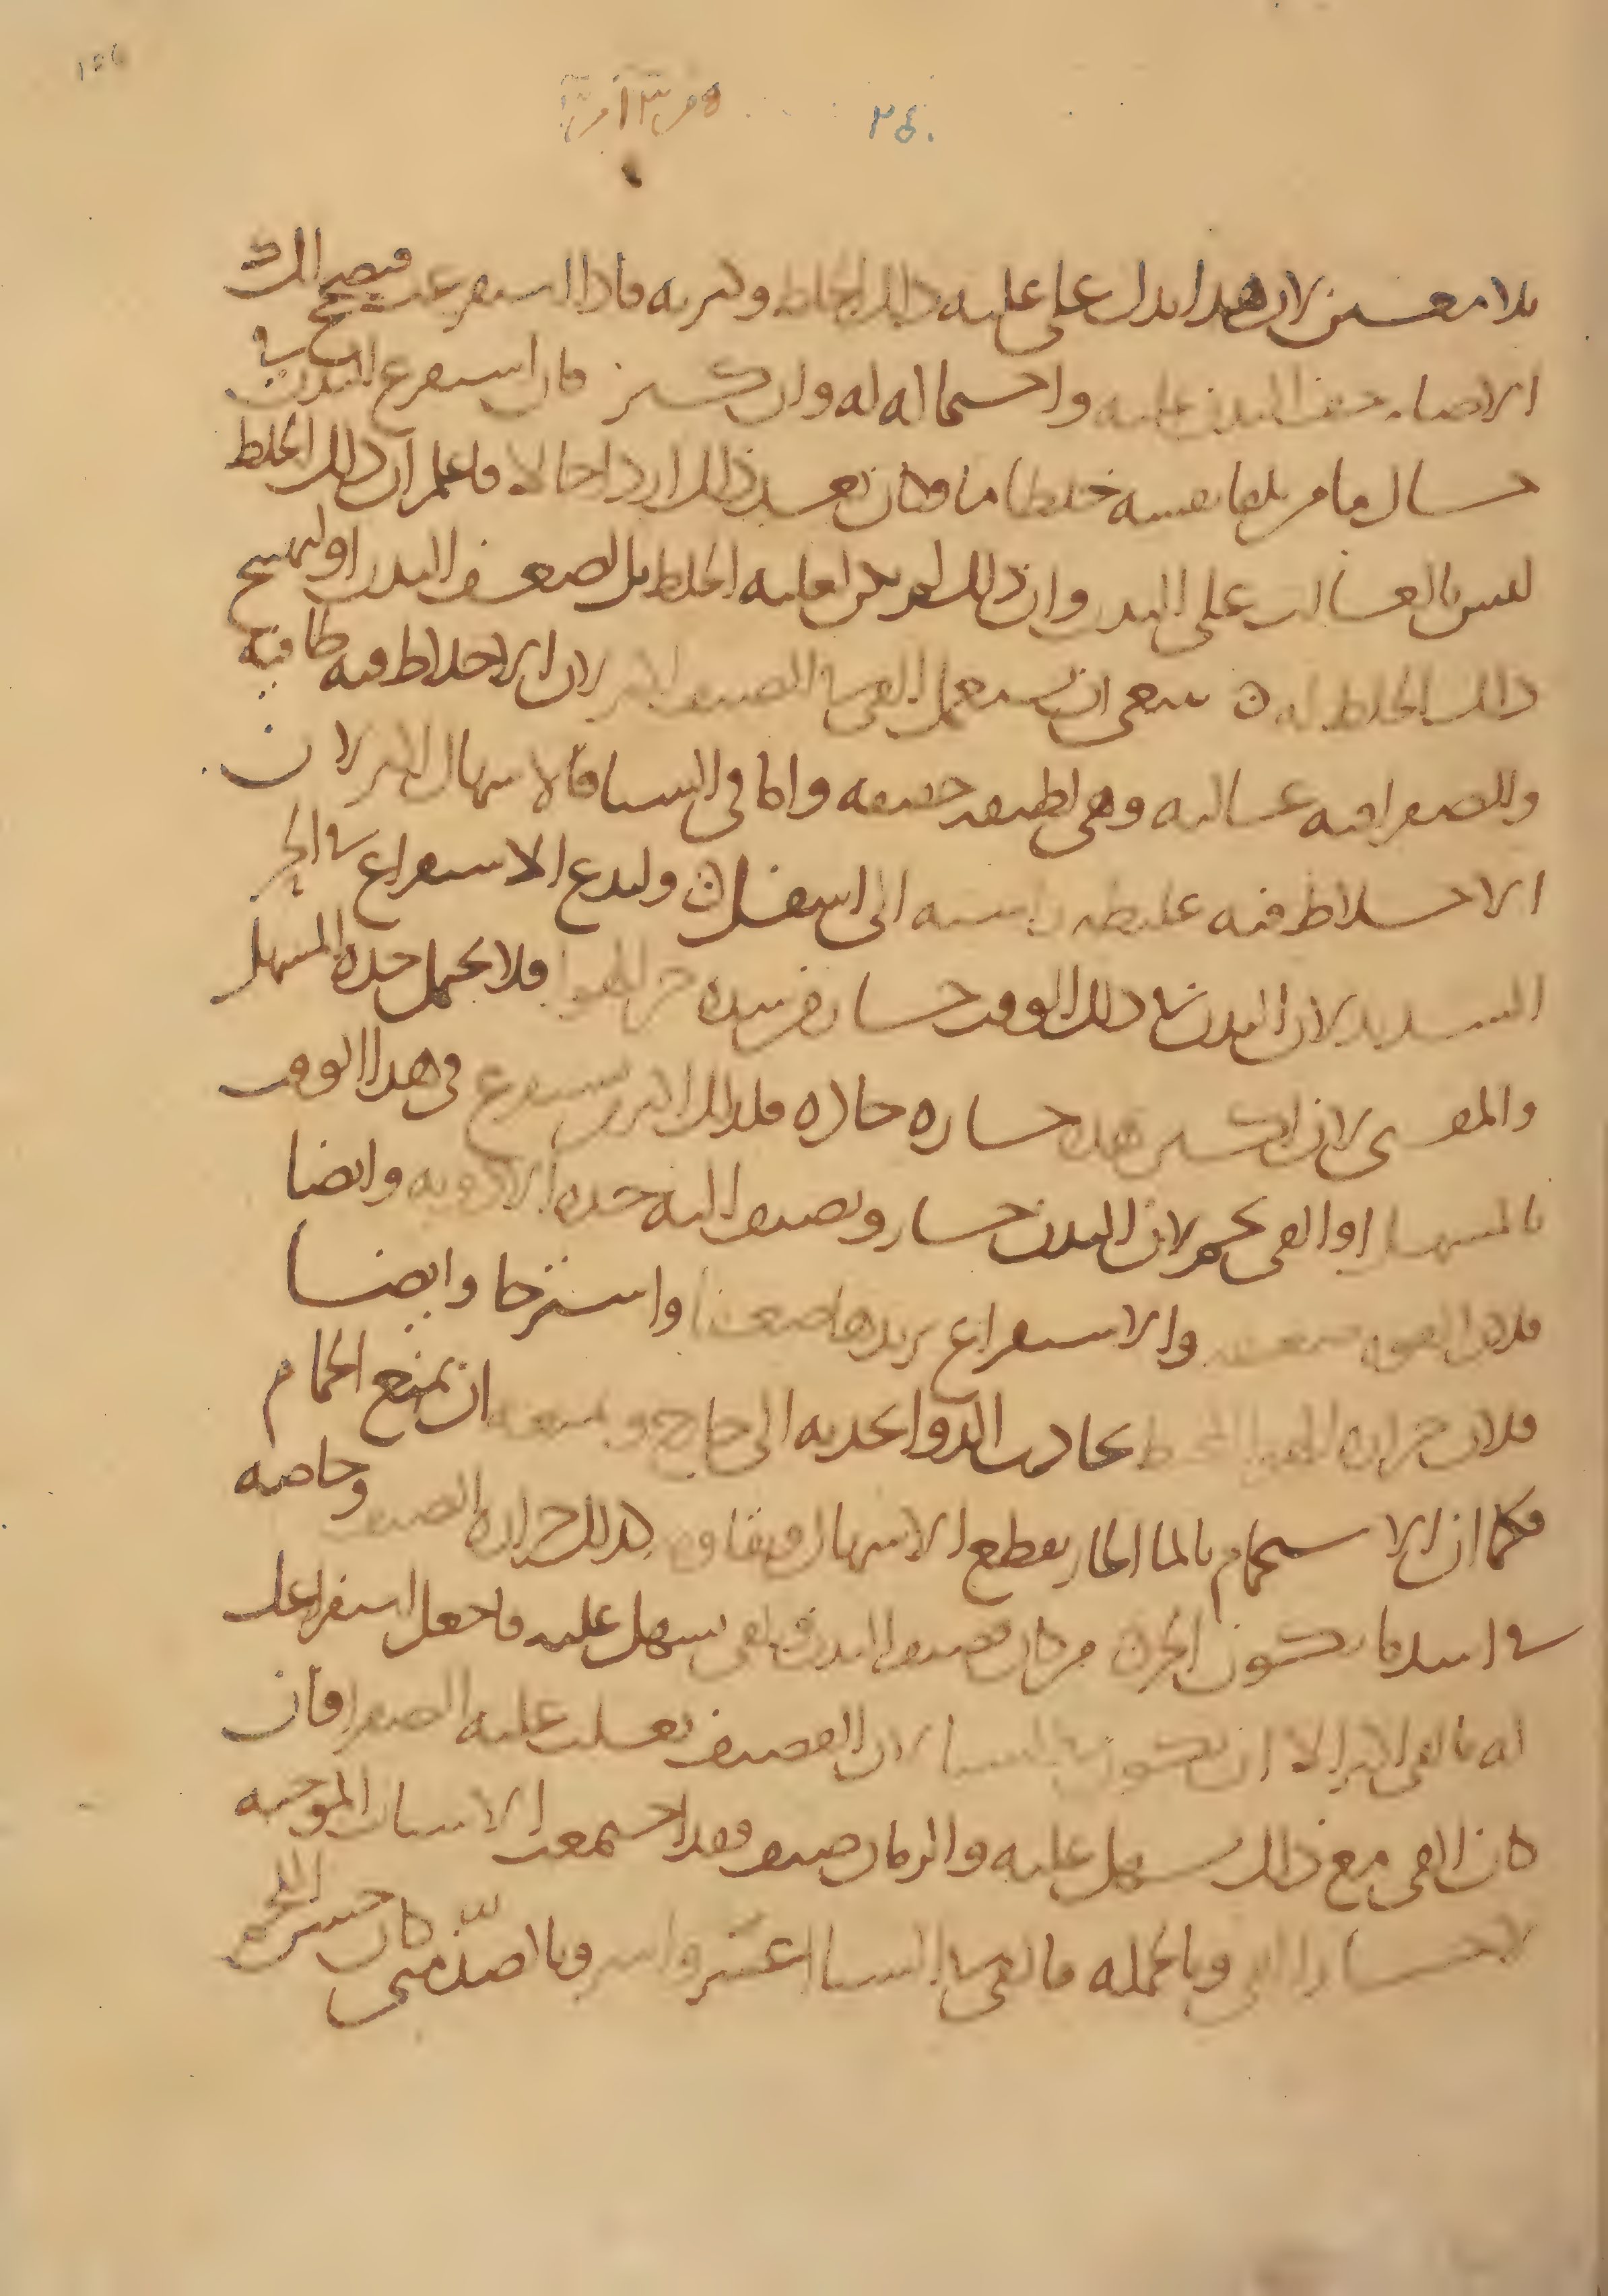 ٢٤٠
بلا معين لان هذا يدل على غلبه ذلك الخلط وكثرته فاذا استفرغت فيصح لك
الانضا خف البدن عليه واحتماله له وان كثر فان استفرغ البدن في
حال ما من تلقا نفسه خلطا ما وكان بعد ذلك اردا حالا فاعلم ان ذلك الخلط
ليس بالغالب على البدن وان ذلك لم يكن لغلبه الخلط بل لضعف البدن او لتهيج
ذلك الخلط له ن ينبغي ان يستعمل القي في الصيف اكثر لان الاخلاط فيه طافيه
وللصفرا فيه غالبه وهي لطيفه خفيفه واما في الشتا فالاسهال اكثر لان
الاخلاط فيه غليظه راسبه الى اسفل ن وليدع الاستفراغ في الحر
الشديد لان البدن في ذلك الوقت حار من شده حر الهوا فلا يحمل حده المسهل
والمقي لان اكثر هذه حاره حاده فلذلك اكثر من يستفرغ في هذا الوقت
بالمسهل او القي يحم لان البدن حار ويضيف اليه حده الادويه وايضا
فلان القوه ضعيفه والاستفراغ يزيدها ضعفا واسترخا وايضا
فلان حراره الهوا المحيط تجاذب الدوا بجذبه الى خارج ويمنعه ان يمنع الحمام
فكما ان الاستحمام بالما الحار يقطع الاسهال ويقاومه كذلك حراره الصيف وخاصه
في اشد ما يكون الحر ن من كان قضيف البدن والقي يسهل عليه فاجعل استفراغك
له بالقي اكثر الا ان يكون في الشتا لان القضيف تغلب عليه الصفرا فان
كان القي مع ذلك يسهل عليه والزمان صيف فقد اجتمعت الاسباب الموجبه
لاختيار القي وبالجمله فالقي في الشتا اعسر واشر وبالضد متى كان حسن اللحم